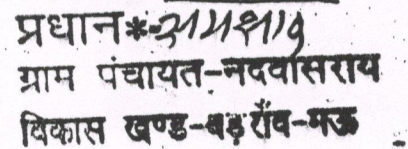 प्रधान*-रामभाव
ग्राम पंचायत-नदवासराय
विकास खण्ड-बड़राँव-मऊ